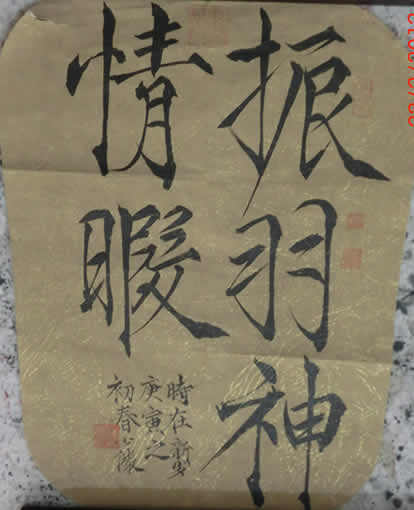 振羽神
情暇
時在新
庚寅之
初春